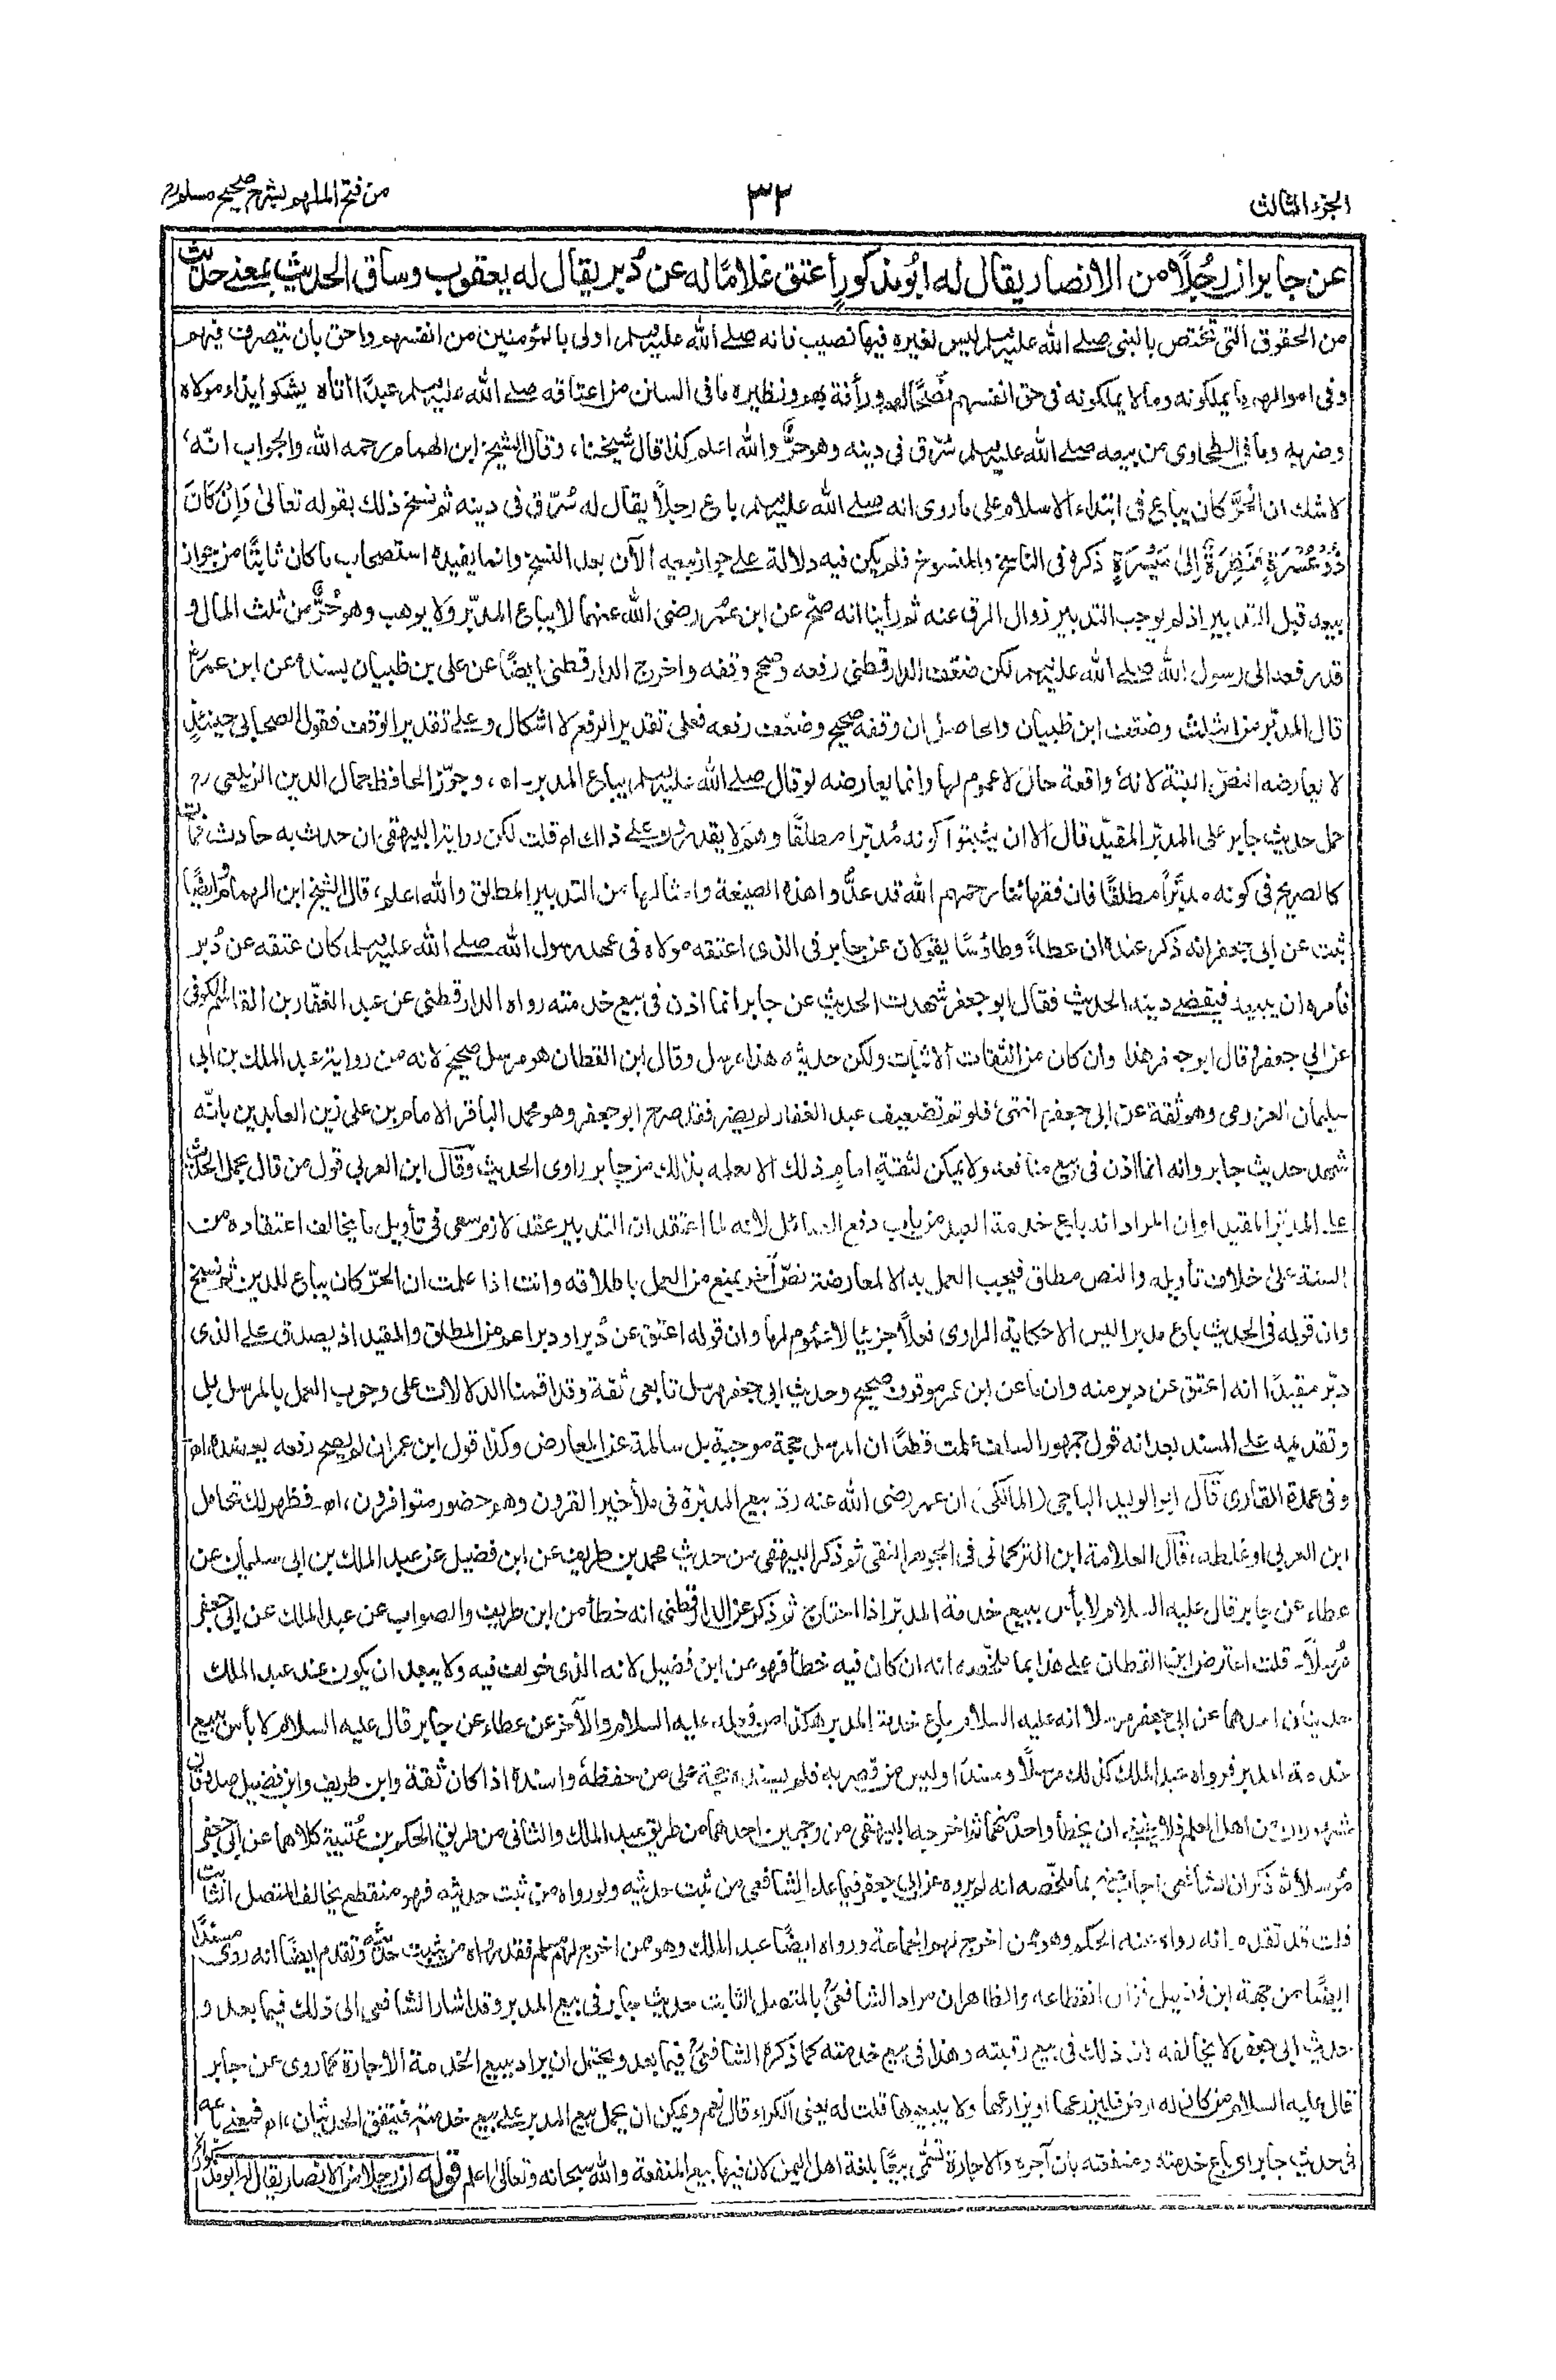 الجزء الثالث
٣٢
من فتح الملهم بشرح صحيح مسلم رح
عن جابر ان رجلًا من الانصار يقال له ابُو مذكور أعتق غلامًا له عن دُبر يقال له يعقوب وساق الحديث بمعنى حديث
من الحقوق التي تختص بالنبي صلے الله عليہ وسلم ليس لغيره فيها نصيب فانه صلے الله عليہ وسلم اولى بالمؤمنين من انفسهم واحق بان يتصرف فيهم
وفى اموالهم ما يملكونه وما لا يملكونه فى حق انفسهم نصحًا لهم ورأفة بهم ونظيره ما فى السنن من اعتاقه صلے الله عليہ وسلم عبدًا اتاه يشكو ايذاء مولاه
وضربه وما فى الطحاوى من بيعه صلے الله عليہ وسلم سُرّق فى دينه وهو حرٌّ والله اعلم كذا قال شيخنا، وقال الشيخ ابن الهمام رحمه الله والجواب انّه
لا شك ان الحُرَّ كان يباع فى ابتداء الاسلام على ما روى انه صلے الله عليہ وسلم باع رجلًا يقال له سُرّق فى دينه ثم نسخ ذلك بقوله تعالىٰ وَاِنْ كَانَ
ذُوْ عُسْرَةٍ فَنَظِرَةٌ اِلىٰ مَيْسَرَةٍ ذكره فى الناسخ والمنسوخ فلم يكن فيه دلالة على جواز بيعه الآن بعد النسخ وانما يفيده استصحاب ما كان ثابتًا من جواز
بيعه قبل التدبير اذ لم يوجب التدبير زوال الرق عنه ثم رأينا انه صحّ عن ابن عمر رضى الله عنهما لا يباع المدبّر ولا يوهب وهو حُرٌّ من ثلث المال و
قد رفعه الى رسول الله صلے الله عليہ وسلم لكن ضعّف الدارقطنى رفعه وصحح وقفه واخرج الدارقطنى ايضًا عن على بن ظبيان بسنده عن ابن عمرؓ
قال المدبّر من الثلث وضعّف ابن ظبيان والحاصل ان وقفه صحيح وضعّف رفعه فعلى تقدير الرفع لا اشكال وعلے تقدير الوقف فقول الصحابى حينئذٍ
لا يعارضه النص البتة لانهٗ واقعة حال لا عموم لها وانما يعارضه لو قال صلے الله عليہ وسلم يباع المدبر۔ اه، وجوّز الحافظ جمال الدين الزيلعى رح
حمل حديث جابر على المدبّر المقيّد قال الا ان يثبتوا كونه مُدبّرا مطلقًا وهم لا يقدرون علے ذلك اه قلت لكن رواية البيهقى ان حدث به حادث فمات
كالصريح فى كونه مدبّرًا مطلقًا فان فقهائنا رحمهم الله قد عدُّوا هذه الصيغة وامثالها من التدبير المطلق والله اعلم، قال الشيخ ابن الهمام ايضًا
ثبت عن ابى جعفر انه ذكر عنده ان عطاءً وطاوُسًا يقولان عن جابر فى الذى اعتقه مولاه فى عهد رسول الله صلے الله عليہ وسلم كان عتقه عن دُبر
فأمره ان يبيعه فيقضے دينه الحديث فقال ابو جعفر شهدت الحديث عن جابر انما اذن فى بيع خدمته رواه الدارقطنى عن عبد الغفّار بن القاسم الكوفى
عن ابى جعفر قال ابو جعفر هذا وان كان من الثقات الاثبات ولكن حديثه هذا مرسل وقال ابن القطان هو مرسل صحيح لانه من رواية عبد الملك بن ابى
سليمان العزرمى وهو ثقة عن ابى جعفر انتهىٰ فلو تم تضعيف عبد الغفار لم يضر فقد صرح ابو جعفر وهو محمد الباقر الامام بن على زين العابدين بانّه
شهد حديث جابر وانه انما اذن فى بيع منافعه ولا يمكن لثقة امام ذلك الا بعلمه بذلك من جابر راوى الحديث وقال ابن العربى قول من قال بحمل الحديث
على المدبّر المقيد او ان المراد انه باع خدمة العبد من باب دفع الصائل لانه لما اعتقد ان التدبير عقد لازم سعى فى تأويل ما يخالف اعتقاده من
السنة علىٰ خلاف تأويله والنص مطلق فيجب العمل به الا لمعارضة نصّ آخر يمنع من العمل باطلاقه وانت اذا علمت ان الحرّ كان يباع للدين ثم نسخ
وان قوله فى الحديث باع مدبرا ليس الا حكاية الراوى فعلًا جزئيا لا عموم لها وان قوله اعتق عن دُبر او دبر اعم من المطلق والمقيد اذ يصدق على الذى
دبّر مقيدًا انه اعتق عن دبر منه وان ما عن ابن عمر موقوف صحيح وحديث ابى جعفر مرسل تابعى ثقة وقد اقمنا الدلالات على وجوب العمل بالمرسل بل
وتقديمه على المسند بعد انه قول جمهور السلف علمت قطعًا ان المرسل حجة موجبة بل سالمة عن المعارض وكذا قول ابن عمر ان لم يصح رفعه
وفى عمدة القارى قال ابو الوليد الباجى (المالكى) ان عمر رضى الله عنه ردّ بيع المدبّرة فى ملأ خير القرون وهم حضور متوافرون، اه۔ فظهر لك تحامل
ابن العربى او غلطه، قال العلامة ابن التركمانى فى الجوهر النقى ثم ذكر البيهقى من حديث محمد بن طريف عن ابن فضيل عن عبد الملك بن ابى سليمان عن
عطاء عن جابر قال عليه السلام لا بأس ببيع خدمة المدبّر اذا احتاج ثم ذكر عن الدارقطنى انه خطأ من ابن طريف والصواب عن عبد الملك عن ابى جعفر
مُرسلًا۔ قلت اعترض ابن القطان على هذا بما ملخّصه انه ان كان فيه خطأ فهو من ابن فضيل لانه الذى خولف فيه ولا يبعد ان يكون عند عبد الملك
حديثان احدهما عن ابى جعفر مرسلا انه عليه السلام باع خدمة المدبر هكذا من فعله عليه السلام والآخر عن عطاء عن جابر قال عليه السلام لا بأس ببيع
خدمة المدبر فرواه عبد الملك كذلك مرسلًا ومسندًا وليس من قصر به فلم يسنده حجة على من حفظهٗ واسنده اذا كان ثقة وابن طريف وابن فضيل صدوقان
مشهوران من اهل العلم فلا ان يخطأ واحد منهما ثم اخرجه البيهقى من وجهين احدهما من طريق عبد الملك والثانى من طريق الحكم بن عُتيبة كلاهما عن ابى جعفر
مُرسلًا ثم ذكر ان الشافعى اجاب بما ملخّصه انه لم يروه عن ابى جعفر فيما علم الشافعى من ثبت حديثه ولو رواه من ثبت حديثه فهو منقطع يخالف المتصل الثابت
قلت قد تقدم انه رواه عنه الحكم وهو ممن اخرج لهم الجماعة ورواه ايضًا عبد الملك وهو ممن اخرج لهم مسلم فقد رواه من يثبت حديثه وتقدم ايضًا انه روى مسندًا
ايضًا من جهة ابن فضيل فزال انقطاعه والظاهر ان مراد الشافعىؒ بالمتصل الثابت حديث جابر فى بيع المدبر وقد اشار الشافعى الى ذلك فيما بعد و
حديث ابى جعفر لا يخالفه اذ ذلك فى بيع رقبته وهذا فى بيع خدمته كما ذكره الشافعىؒ فيما بعد ويحتمل ان يراد ببيع الخدمة الاجارة كما روى عن جابر
قال عليه السلام من كان له ارض فليزرعها او يزارعها ولا يبيعها قلت له يعنى الكراء قال نعم ويمكن ان يحمل بيع المدبر على بيع خدمته فيتفق الحديثان، اه فمعنى باعه
فى حديث جابر اى باع خدمته ومنفعته بان آجره والاجارة تُسمّى بيعًا بلغة اهل اليمن لان فيها بيع المنفعة والله سبحانه وتعالىٰ اعلم قوله ان رجلا من الانصار يقال له ابو مذكور الخ